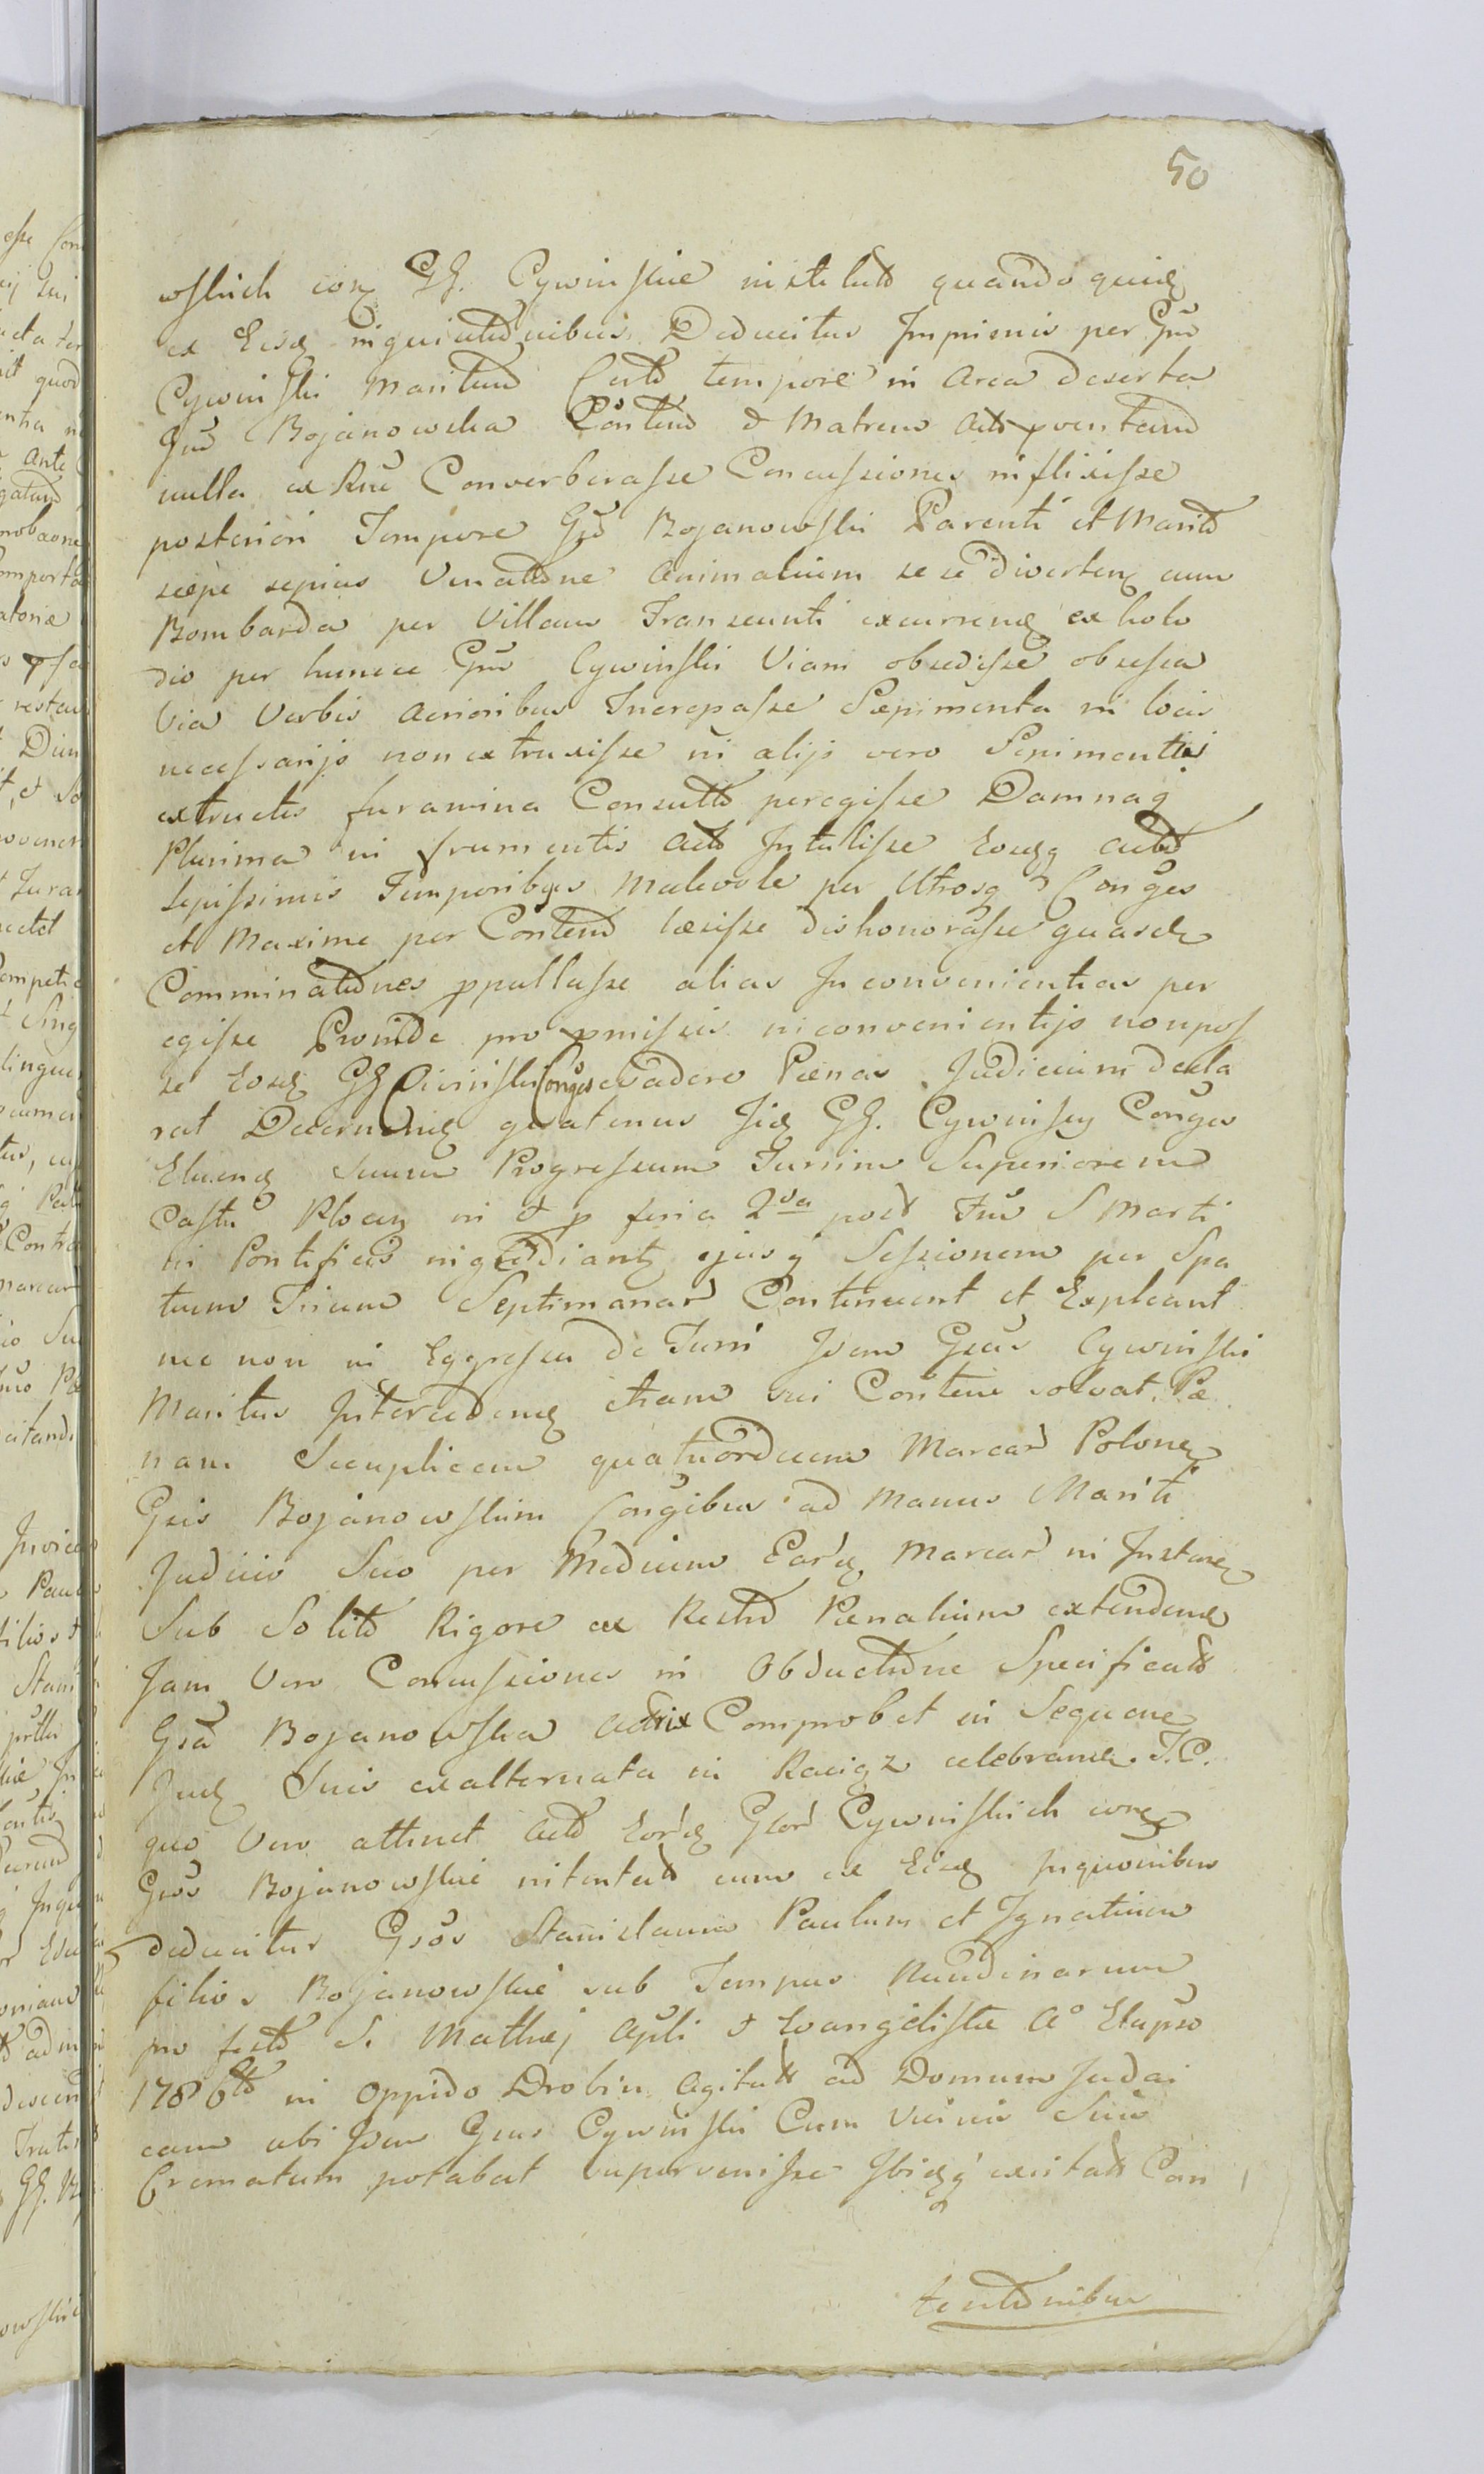 50
wskich con GG. Cywinskie instituta quandoquid
ex Eisd inquisitionibus Deducitur Imprimis per Gnu
Cywinski Maritum Certo tempore in area deserta
Gnd Bojanowska Consortem & Matrem acto pventam
nulla ex Rne Converberasse Concussiones inflixisse
posteriori Tempore Gso Bojanowski Parenti et Marito
sæpe sepius Venatione animalium sese diverten cum
Bombarda per Villam Transeunti excurrend ex holo
dio per hunce Gnu Cywinski Viam obsedisse obsessa
Via Verbis acrioribus Increpasse Sæpimenta in locis
necessarijs non extruxisse in alijs vero Sepimentis
extructis furamina Consulto peregisse Damnaq
Plurima in frumentis acto Intulisse Eosdq acto
Sepissimis Temporibus Malevole per Utrosq Conges
et Maxime per Contend læsisse dishonorasse quasd
Comminationes ppullasse alias Inconvenientias per
egisse Proinde pro pmissis inconvenientijs nonpos
se Eosd GG Civinski Conges evadere Pænas Judicium decla
rat Decernend quatenus Jid GG. Cywinscy Conges
Eluend suum Progressum Turrim Superiorem
Castri Plocen in & p feria 2da post Fm S Marti
ni Pontificis ingrediant ejusq Sessionem per Spa
tium Trium Septimanar Continuent et Expleant
nec non in Eggressu de Turri Idem Gsus Cywinski
Maritus Intercedend etiam sui Contene solvat Pæ
nam Seuplicem quatuordecem Marcar Polone
Gsis Bojanowskim Congibus ad Manus Mariti
Judicio Suo per Medium Eard Marcar in Instan
Sub Solito Rigore ex Resto Pænalium extendend
Jam Vero Concussiones in Obductione Specificats
Gsa Bojanowska actrix Comprobet in Sequen
Jud Suis exalternata in Raciąz celebrand. T.C.
quo Vero attinet acto Eord Gsor Cywinskich con
Gsos Bojanowskie intentats cum ex Eisd Inquonibus
deducitur Gsos Stanislaum Paulum et Ignatium
filios Bojanowskie sub Tempus Nundinarum
pro festo S. Mathæj Apli & Evangelistæ Ao Elapso
1786to in oppido Drobin agitats ad Domum Judai
cam ubi Idem Gsus Cywinski Cum Vicinis Suis
Crematum potabat supervenisse Ibidq excitats Con
tentonibus